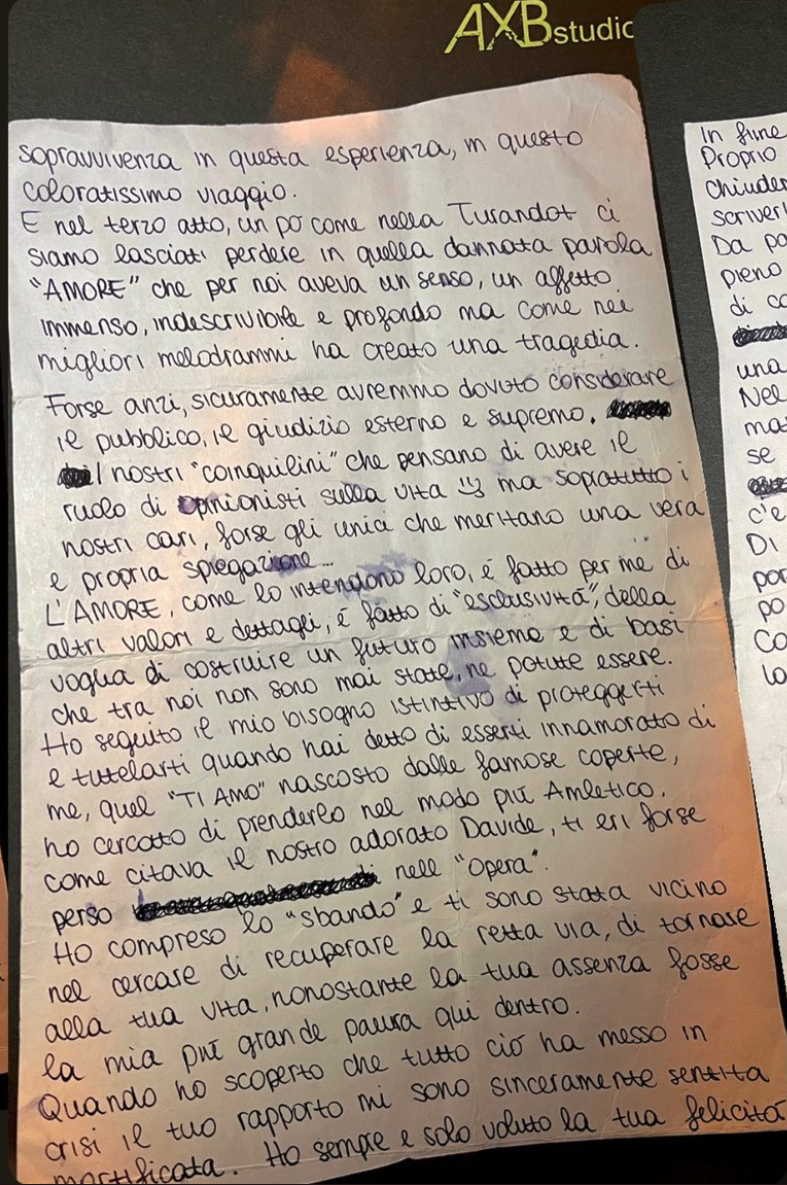 AXB studio
sopravvivenza in questa esperienza, in questo
coloratissimo viaggio.
E nel terzo atto, un pò come nella Turandot ci
siamo lasciati perdere in quella dannata parola
"AMORE" che per noi aveva un senso, un affetto
immenso, indescrivibile e profondo ma come nei
migliori melodrammi ha creato una tragedia.
Forse anzi, sicuramente avremmo dovuto considerare
il pubblico, il giudizio esterno e supremo.
I nostri "coinquilini" che pensano di avere il
ruolo di opinionisti sulla vita ma sopratutto i
nostri cari, forse gli unici che meritano una vera
e propria spiegazione...
L'AMORE, come lo intendono loro, é fatto per me di
altri valori e dettagli, é fatto di "esclusività", della
voglia di costruire un futuro insieme e di basi
che tra noi non sono mai state, ne potute essere.
Ho seguito il mio bisogno istintivo di proteggerti
e tutelarti quando hai detto di esserti innamorato di
me, quel "TI AMO" nascosto dalle famose coperte,
ho cercato di prenderlo nel modo più Amletico.
come citava il nostro adorato Davide, ti eri forse
perso nell "Opera".
Ho compreso lo "sbando" e ti sono stata vicino
nel cercare di recuperare la retta via, di tornare
alla tua vita, nonostante la tua assenza fosse
la mia più grande paura qui dentro.
Quando ho scoperto che tutto ciò ha messo in
crisi il tuo rapporto mi sono sinceramente sentita
mortificata. Ho sempre e solo voluto la tua felicità
In fine
Proprio
chiuder
scriver
Da po
pieno
di co
una
Nel
ma
se
c'e
Di
por
po
Co
lo